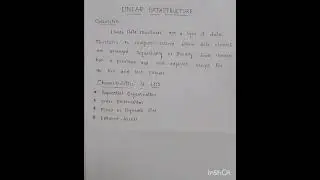 LINEAR DATASTRUCTURE
Linear data structures are a type of data
structure in computer science where data elements
are arranged sequentially or linearly. Each element
has a previous and next adjacent except for
the first and last element.
Characteristics of LDS
Sequential Organization
Order Preservation
Fixed or Dynamic Size
Efficient Access
InShOt